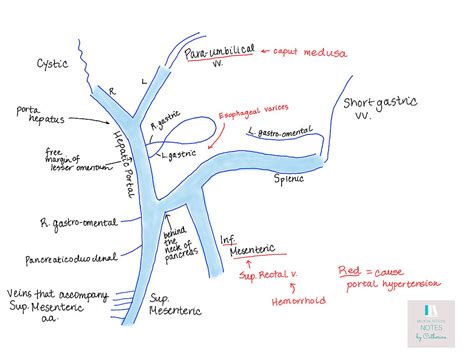 Cystic
Para-umbilical
vv.
caput medusa
R
L
porta
hepatus
Hepatic Portal
R. gastric
L. gastric
Esophageal varices
Short gastric
vv.
L. gastro-omental
free
margin of
lesser omentum
Splenic
R. gastro-omental
behind
the
neck of
pancreas
Pancreaticoduodenal
Inf.
Mesenteric
Sup. Rectal v.
Hemorrhoid
Red = cause
portal hypertension
Veins that accompany
Sup. Mesenteric
aa.
Sup.
Mesenteric
NOTES
by Catherine